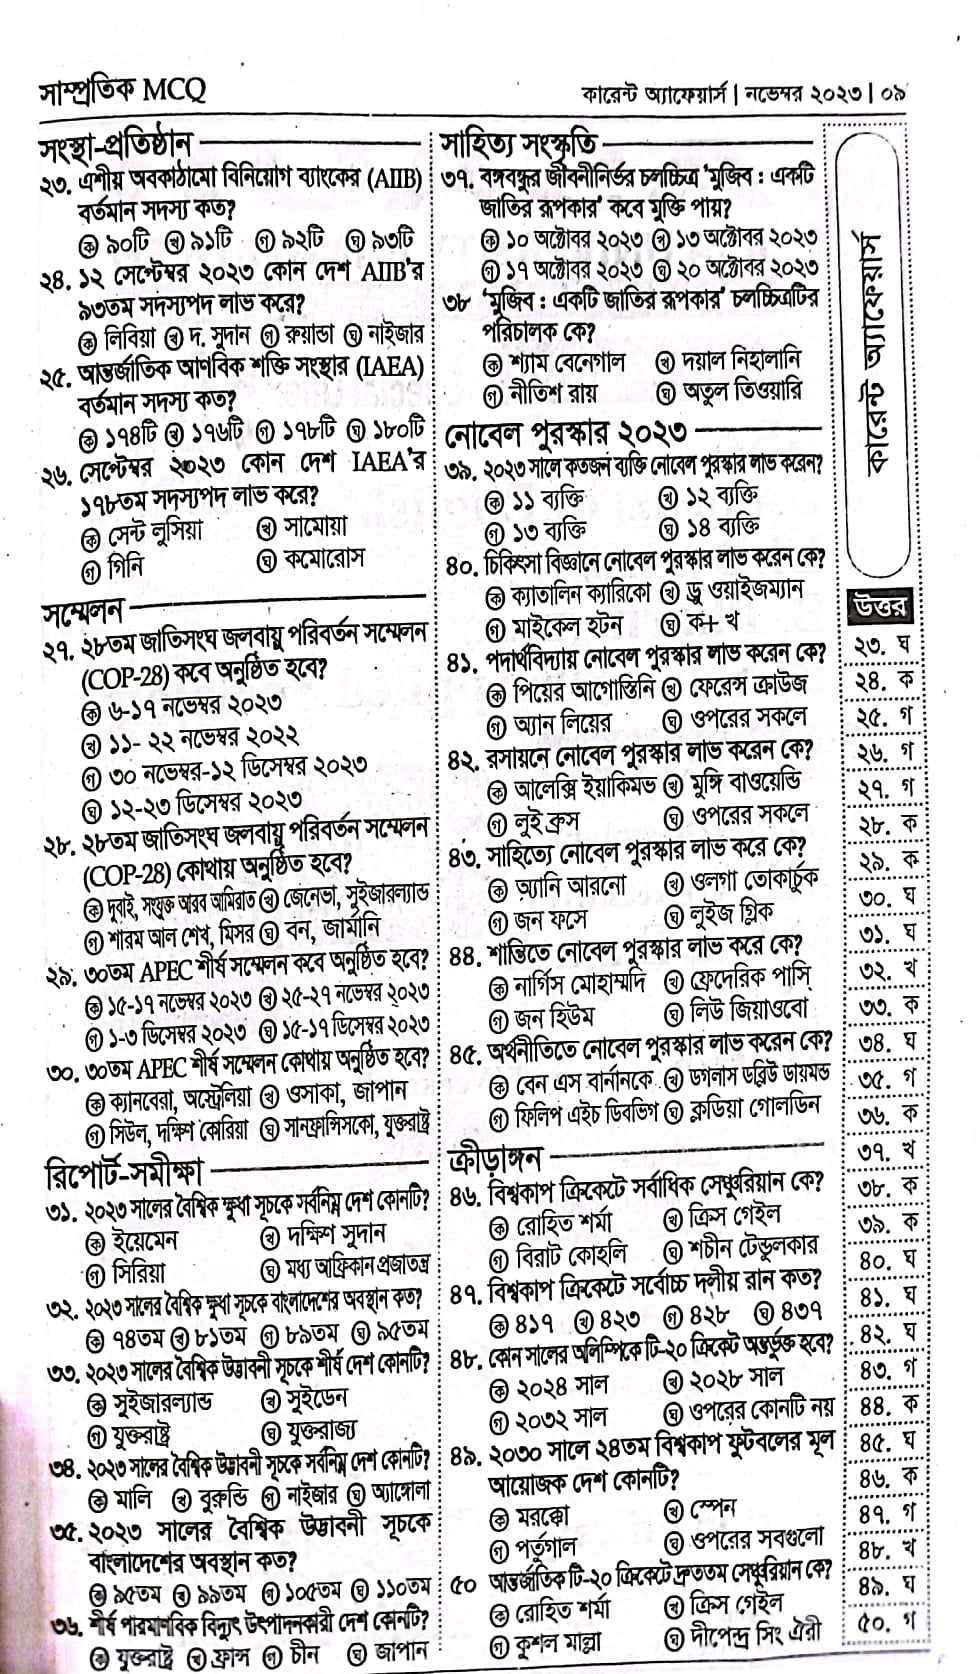 সাম্প্রতিক MCQ
কারেন্ট অ্যাফেয়ার্স | নভেম্বর ২০২৩ | ০৯
সংস্থা-প্রতিষ্ঠান
২৩. এশীয় অবকাঠামো বিনিয়োগ ব্যাংকের (AIIB)
বর্তমান সদস্য কত?
ক ৯০টি খ ৯১টি গ ৯২টি ঘ ৯৩টি
২৪. ১২ সেপ্টেম্বর ২০২৩ কোন দেশ AIIB'র
৯৩তম সদস্যপদ লাভ করে?
ক লিবিয়া খ দ. সুদান গ রুয়ান্ডা ঘ নাইজার
২৫. আন্তর্জাতিক আণবিক শক্তি সংস্থার (IAEA)
বর্তমান সদস্য কত?
ক ১৭৪টি খ ১৭৬টি গ ১৭৮টি ঘ ১৮০টি
২৬. সেপ্টেম্বর ২০২৩ কোন দেশ IAEA'র
১৭৮তম সদস্যপদ লাভ করে?
ক সেন্ট লুসিয়া খ সামোয়া
গ গিনি ঘ কমোরোস
সম্মেলন
২৭. ২৮তম জাতিসংঘ জলবায়ু পরিবর্তন সম্মেলন
(COP-28) কবে অনুষ্ঠিত হবে?
ক ৬-১৭ নভেম্বর ২০২৩
খ ১১- ২২ নভেম্বর ২০২২
গ ৩০ নভেম্বর-১২ ডিসেম্বর ২০২৩
ঘ ১২-২৩ ডিসেম্বর ২০২৩
২৮. ২৮তম জাতিসংঘ জলবায়ু পরিবর্তন সম্মেলন
(COP-28) কোথায় অনুষ্ঠিত হবে?
ক দুবাই, সংযুক্ত আরব আমিরাত খ জেনেভা, সুইজারল্যান্ড
গ শারম আল শেখ, মিসর ঘ বন, জার্মানি
২৯. ৩০তম APEC শীর্ষ সম্মেলন কবে অনুষ্ঠিত হবে?
ক ১৫-১৭ নভেম্বর ২০২৩ খ ২৫-২৭ নভেম্বর ২০২৩
গ ১-৩ ডিসেম্বর ২০২৩ ঘ ১৫-১৭ ডিসেম্বর ২০২৩
৩০. ৩০তম APEC শীর্ষ সম্মেলন কোথায় অনুষ্ঠিত হবে?
ক ক্যানবেরা, অস্ট্রেলিয়া খ ওসাকা, জাপান
গ সিউল, দক্ষিণ কোরিয়া ঘ সানফ্রান্সিসকো, যুক্তরাষ্ট্র
রিপোর্ট-সমীক্ষা
৩১. ২০২৩ সালের বৈশ্বিক ক্ষুধা সূচকে সর্বনিম্ন দেশ কোনটি?
ক ইয়েমেন খ দক্ষিণ সুদান
গ সিরিয়া ঘ মধ্য আফ্রিকান প্রজাতন্ত্র
৩২. ২০২৩ সালের বৈশ্বিক ক্ষুধা সূচকে বাংলাদেশের অবস্থান কত?
ক ৭৪তম খ ৮১তম গ ৮৯তম ঘ ৯৫তম
৩৩. ২০২৩ সালের বৈশ্বিক উদ্ভাবনী সূচকে শীর্ষ দেশ কোনটি?
ক সুইজারল্যান্ড খ সুইডেন
গ যুক্তরাষ্ট্র ঘ যুক্তরাজ্য
৩৪. ২০২৩ সালের বৈশ্বিক উদ্ভাবনী সূচকে সর্বনিম্ন দেশ কোনটি?
ক মালি খ বুরুন্ডি গ নাইজার ঘ অ্যাঙ্গোলা
৩৫. ২০২৩ সালের বৈশ্বিক উদ্ভাবনী সূচকে
বাংলাদেশের অবস্থান কত?
ক ৯৫তম খ ৯৯তম গ ১০৫তম ঘ ১১০তম
৩৬. শীর্ষ পারমাণবিক বিদ্যুৎ উৎপাদনকারী দেশ কোনটি?
ক যুক্তরাষ্ট্র খ ফ্রান্স গ চীন ঘ জাপান
সাহিত্য সংস্কৃতি
৩৭. বঙ্গবন্ধুর জীবনীনির্ভর চলচ্চিত্র 'মুজিব : একটি
জাতির রূপকার' কবে মুক্তি পায়?
ক ১০ অক্টোবর ২০২৩ খ ১৩ অক্টোবর ২০২৩
গ ১৭ অক্টোবর ২০২৩ ঘ ২০ অক্টোবর ২০২৩
৩৮ 'মুজিব : একটি জাতির রূপকার' চলচ্চিত্রটির
পরিচালক কে?
ক শ্যাম বেনেগাল খ দয়াল নিহালানি
গ নীতিশ রায় ঘ অতুল তিওয়ারি
নোবেল পুরস্কার ২০২৩
৩৯. ২০২৩ সালে কতজন ব্যক্তি নোবেল পুরস্কার লাভ করেন?
ক ১১ ব্যক্তি খ ১২ ব্যক্তি
গ ১৩ ব্যক্তি ঘ ১৪ ব্যক্তি
৪০. চিকিৎসা বিজ্ঞানে নোবেল পুরস্কার লাভ করেন কে?
ক ক্যাতালিন ক্যারিকো খ ড্রু ওয়াইজম্যান
গ মাইকেল হটন ঘ ক+ খ
৪১. পদার্থবিদ্যায় নোবেল পুরস্কার লাভ করেন কে?
ক পিয়ের আগোস্তিনি খ ফেরেন্স ক্রাউজ
গ অ্যান লিয়ের ঘ ওপরের সকলে
৪২. রসায়নে নোবেল পুরস্কার লাভ করেন কে?
ক আলেক্সি ইয়াকিমভ খ মুঙ্গি বাওয়েন্ডি
গ লুই ব্রুস ঘ ওপরের সকলে
৪৩. সাহিত্যে নোবেল পুরস্কার লাভ করে কে?
ক অ্যানি আরনো খ ওলগা তোকার্চুক
গ জন ফসে ঘ লুইজ গ্লিক
৪৪. শান্তিতে নোবেল পুরস্কার লাভ করে কে?
ক নার্গিস মোহাম্মদি খ ফ্রেদেরিক পাসি
গ জন হিউম ঘ লিউ জিয়াওবো
৪৫. অর্থনীতিতে নোবেল পুরস্কার লাভ করেন কে?
ক বেন এস বার্নানকে খ ডগলাস ডব্লিউ ডায়মন্ড
গ ফিলিপ এইচ ডিবভিগ ঘ ক্লডিয়া গোলডিন
ক্রীড়াঙ্গন
৪৬. বিশ্বকাপ ক্রিকেটে সর্বাধিক সেঞ্চুরিয়ান কে?
ক রোহিত শর্মা খ ক্রিস গেইল
গ বিরাট কোহলি ঘ শচীন টেন্ডুলকার
৪৭. বিশ্বকাপ ক্রিকেটে সর্বোচ্চ দলীয় রান কত?
ক ৪১৭ খ ৪২৩ গ ৪২৮ ঘ ৪৩৭
৪৮. কোন সালের অলিম্পিকে টি-২০ ক্রিকেট অন্তর্ভুক্ত হবে?
ক ২০২৪ সাল খ ২০২৮ সাল
গ ২০৩২ সাল ঘ ওপরের কোনটি নয়
৪৯. ২০৩০ সালে ২৪তম বিশ্বকাপ ফুটবলের মূল
আয়োজক দেশ কোনটি?
ক মরক্কো খ স্পেন
গ পর্তুগাল ঘ ওপরের সবগুলো
৫০ আন্তর্জাতিক টি-২০ ক্রিকেটে দ্রুততম সেঞ্চুরিয়ান কে?
ক রোহিত শর্মা খ ক্রিস গেইল
গ কুশল মাল্লা ঘ দীপেন্দ্র সিং ঐরী
কারেন্ট অ্যাফেয়ার্স
উত্তর
২৩. ঘ
২৪. ক
২৫. গ
২৬. গ
২৭. গ
২৮. ক
২৯. ক
৩০. ঘ
৩১. ঘ
৩২. খ
৩৩. ক
৩৪. ঘ
৩৫. গ
৩৬. ক
৩৭. খ
৩৮. ক
৩৯. ক
৪০. ঘ
৪১. ঘ
৪২. ঘ
৪৩. গ
৪৪. ক
৪৫. ঘ
৪৬. ক
৪৭. গ
৪৮. খ
৪৯. ঘ
৫০. গ